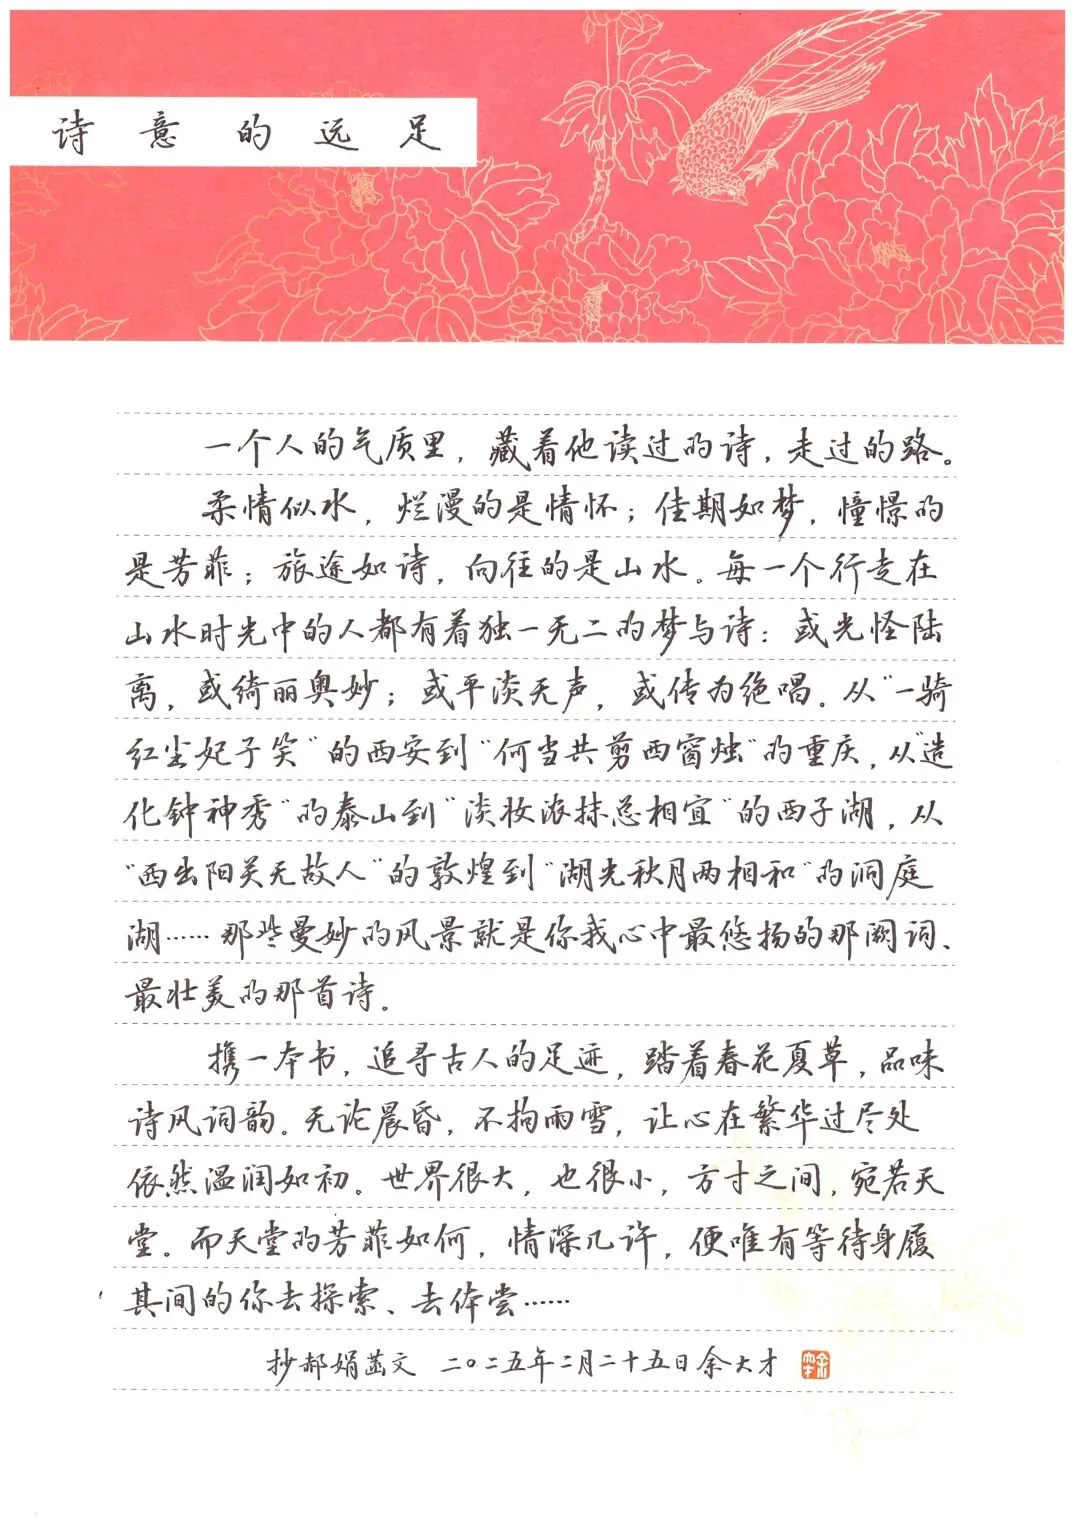 诗意的远足
一个人的气质里，藏着他读过的诗，走过的路。
柔情似水，烂漫的是情怀；佳期如梦，憧憬的
是芳菲；旅途如诗，向往的是山水。每一个行走在
山水时光中的人都有着独一无二的梦与诗：或光怪陆
离，或绮丽奥妙；或平淡无声，或传为绝唱。从“一骑
红尘妃子笑”的西安到“何当共剪西窗烛”的重庆，从“造
化钟神秀”的泰山到“淡妆浓抹总相宜”的西子湖，从
“西出阳关无故人”的敦煌到“湖光秋月两相和”的洞庭
湖……那些曼妙的风景就是你我心中最悠扬的那阙词、
最壮美的那首诗。
携一本书，追寻古人的足迹，踏着春花夏草，品味
诗风词韵。无论晨昏，不拘雨雪，让心在繁华过尽处
依然温润如初。世界很大，也很小，方寸之间，宛若天
堂。而天堂的芳菲如何，情深几许，便唯有等待身履
其间的你去探索、去体尝……
抄郝娟菡文 二〇二五年二月二十五日余大才